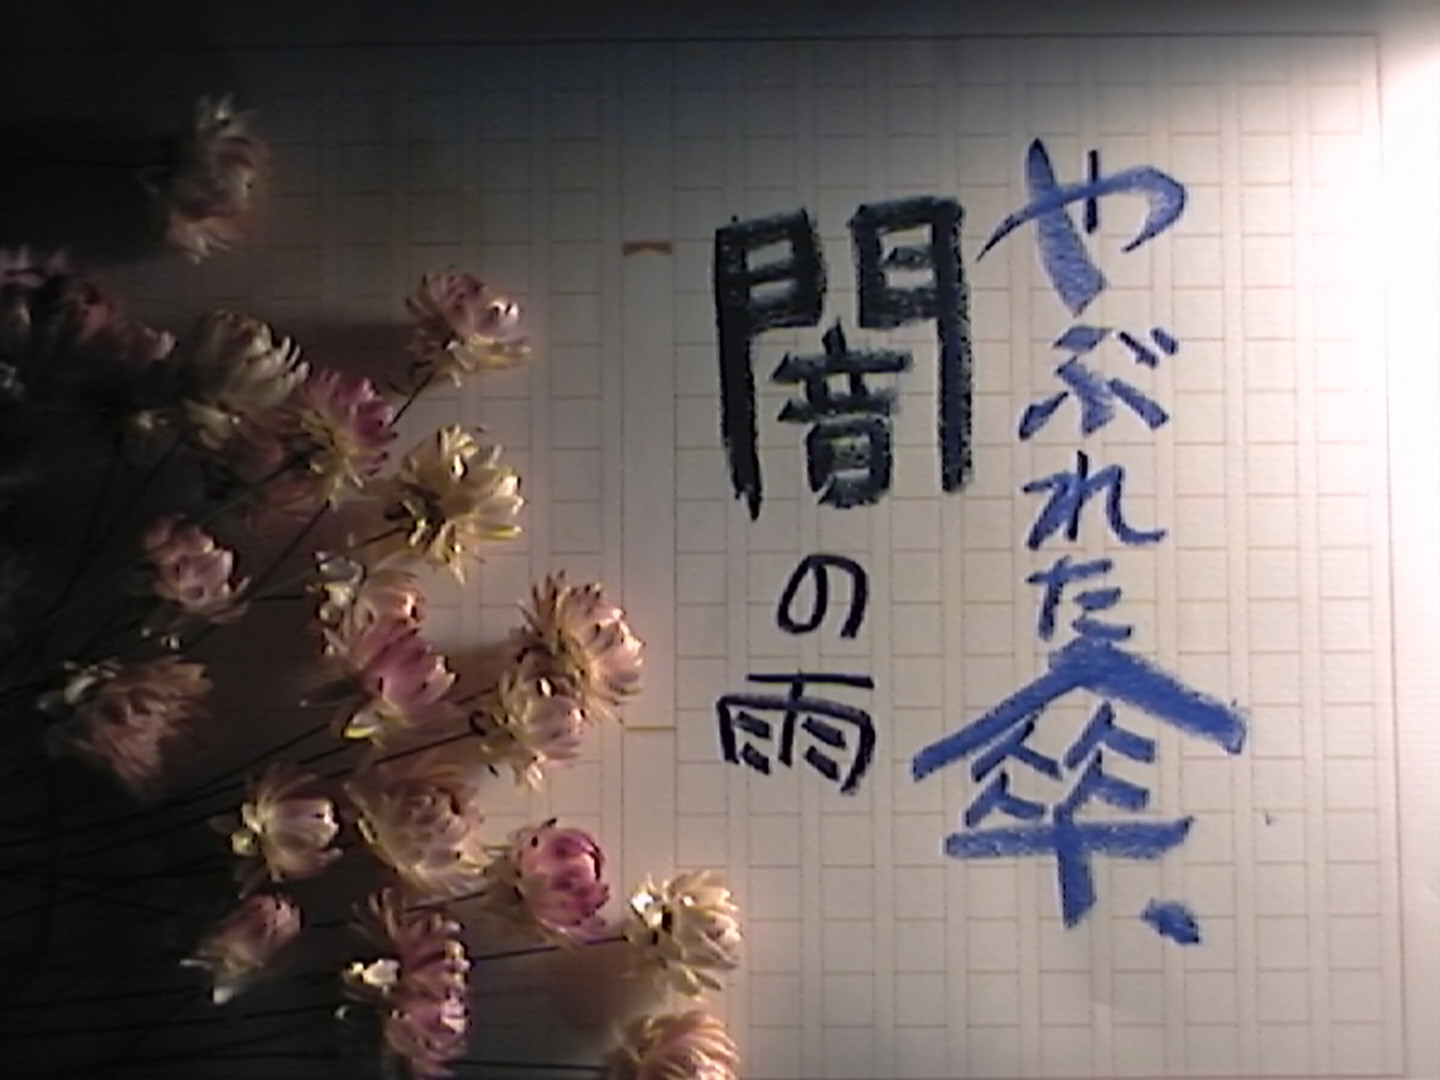 やぶれた傘、
闇の雨